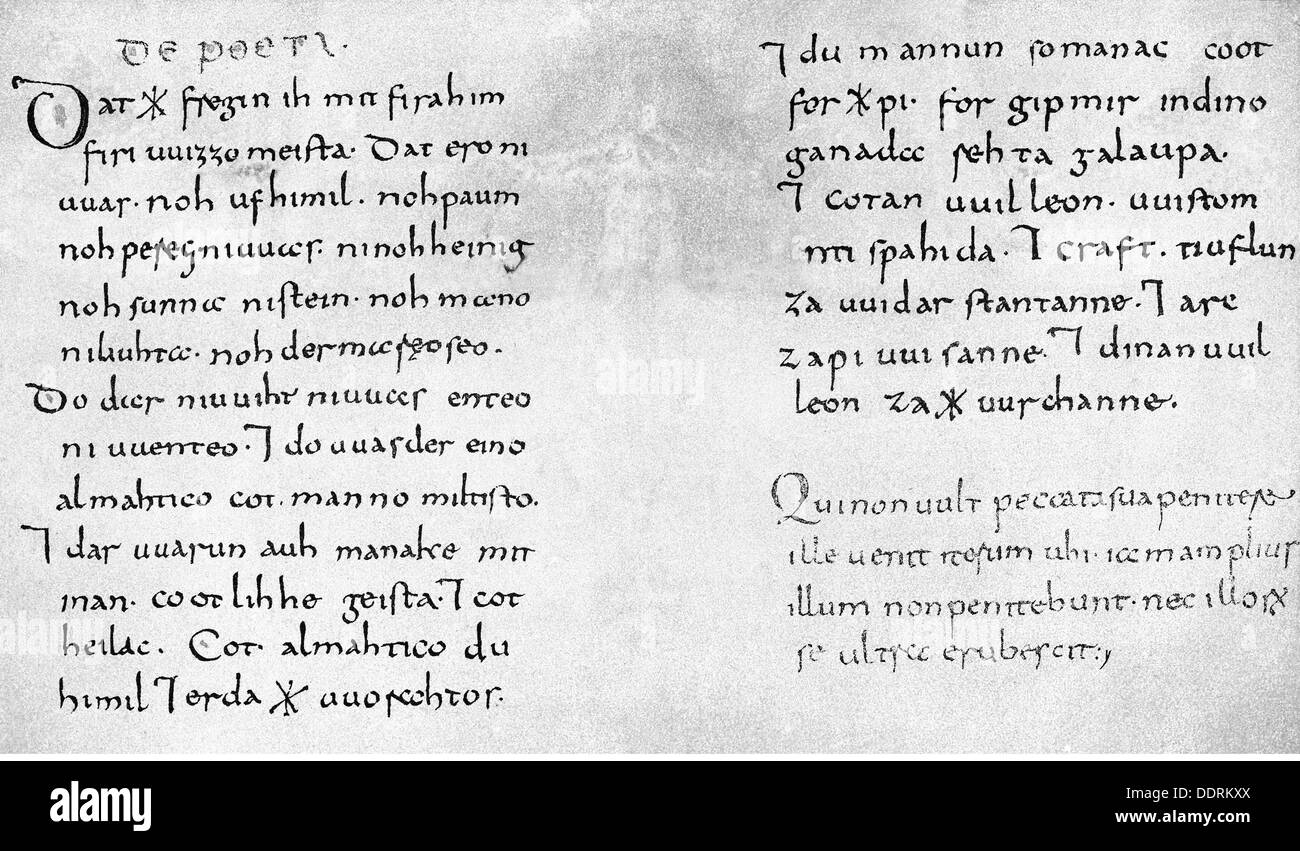 DE POETA.
Dat ᛡ fregin ih mit firahim
firi uuizzo meista. Dat ero ni
uuas. noh ufhimil. noh paum
noh pereg. ni uuas. ni nohheinig
noh sunna ni stein. noh mano
ni liuhta. noh der mareo seo.
Do dar niuuiht niuuas enteo
ni uuenteo. ⁊ do uuas der eino
almahtico cot. manno miltisto.
⁊ dar uuarun auh manake mit
inan. cootlihhe geista. ⁊ cot
heilac. Cot almahtico du
himil ⁊ erda ᛡ uuorahtos.
⁊ du mannun so manac coot
for ᛡ pi. for gip mir indino
ganada rehta galaupa.
⁊ cotan uuilleon. uuistom
nti spahida. ⁊ craft. tiuflun
za uuidar stantanne. ⁊ arc
za pi uuisanne. ⁊ dinan uuil
leon za ᛡ uurchanne.
Qui non uult peccata sua penitere
ille uenit iterum ubi. iam amplius
illum non penitebunt. nec illorum
se ultra erubescit.
alamy
Image ID: DDRKXX
www.alamy.com